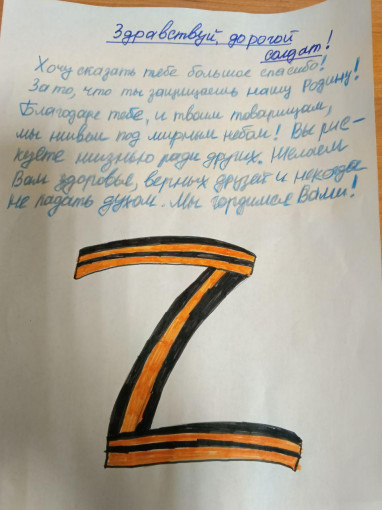 Здравствуй, дорогой
солдат!
Хочу сказать тебе большое спасибо!
За то, что ты защищаешь нашу Родину!
Благодаря тебе, и твоим товарищам,
мы живём под мирным небом! Вы рис-
куете жизнью ради других. Желаем
Вам здоровье, верных друзей и никогда
не падать духом. Мы гордимся Вами!
Z